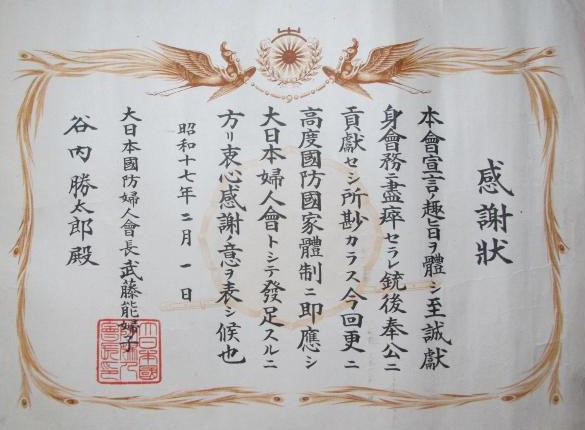 感謝狀
本會宣言ノ趣旨ヲ體シ至誠獻
身會務ニ盡瘁セラレ銃後奉公ニ
貢獻セシ所尠カラス今回更ニ
高度國防國家體制ニ即應シ
大日本婦人會トシテ發足スルニ
方リ衷心感謝ノ意ヲ表シ候也
昭和十七年二月一日
大日本國防婦人會長武藤能婦子
谷內勝太郎殿